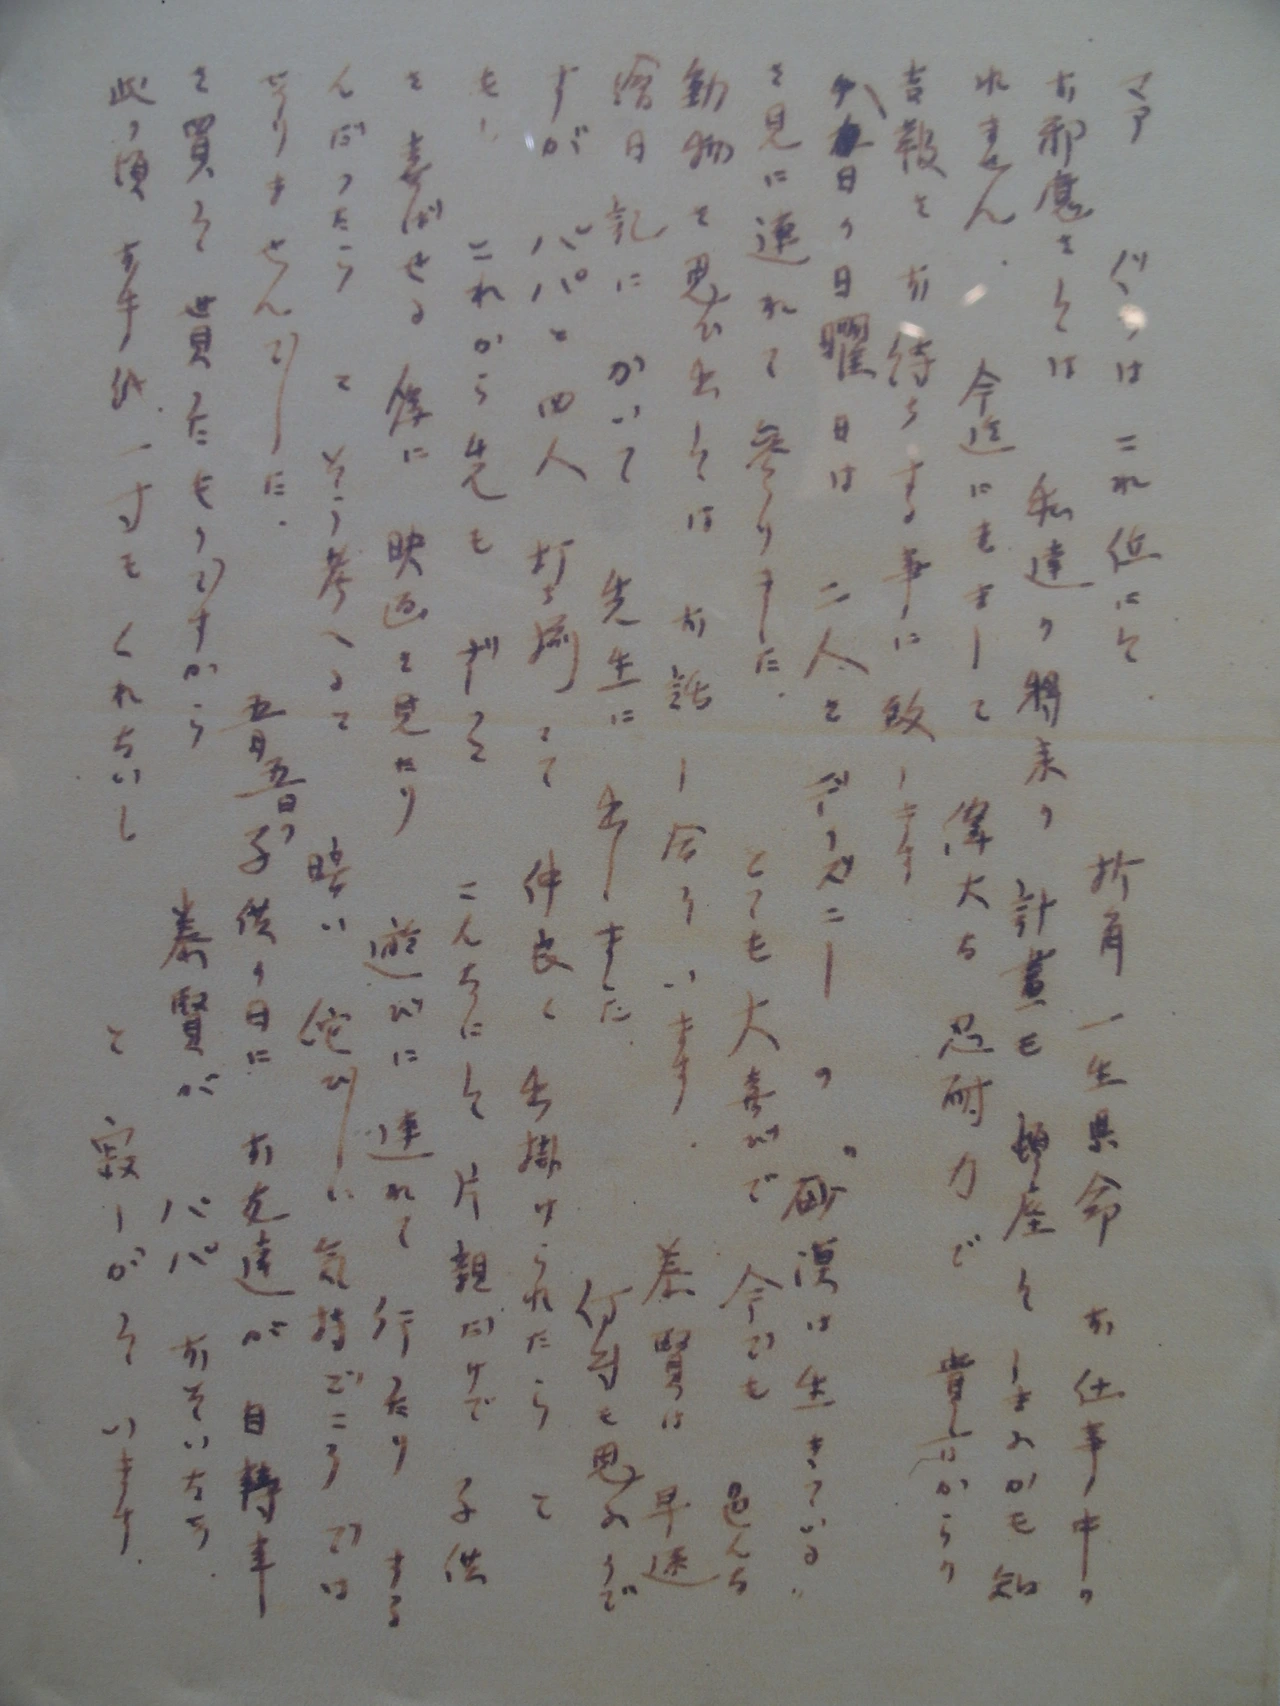 マア ぐちは これ位にして 折角一生県命 お仕事中の
お邪魔をしては 私達の将来の 計畫も 頓座して しまふかも知
れません. 今迄にもまして 偉大な 忍耐力で 貴方からの
吉報を お待ちする事に 致します
八日の日曜日は 二人を デズニーの "砂漠は生きている"
を見に連れて 参りました. とても大喜びで 今でも 色んな
動物を思ひ出しては お話し合っています. 泰賢は 早速
繪日記に かいて 先生に 出しました 何時も思ふので
すが パパと四人 打ち揃って 仲良く 出掛けられたらって
も, これから先も ずっと こんなにして 片親だけで 子供
を 喜ばせる 為に 映画を見たり 遊びに 連れて 行たり する
んだったらって そう考へるて 暗い 侘びしい 気持どころ では
ありませんでした. 五月五日の子供の日に お友達が 自轉車
を買って 貰ったものですから 泰賢が パパ おそいなあ
此の頃 お手紙 一寸もくれないし と 寂しがって います.